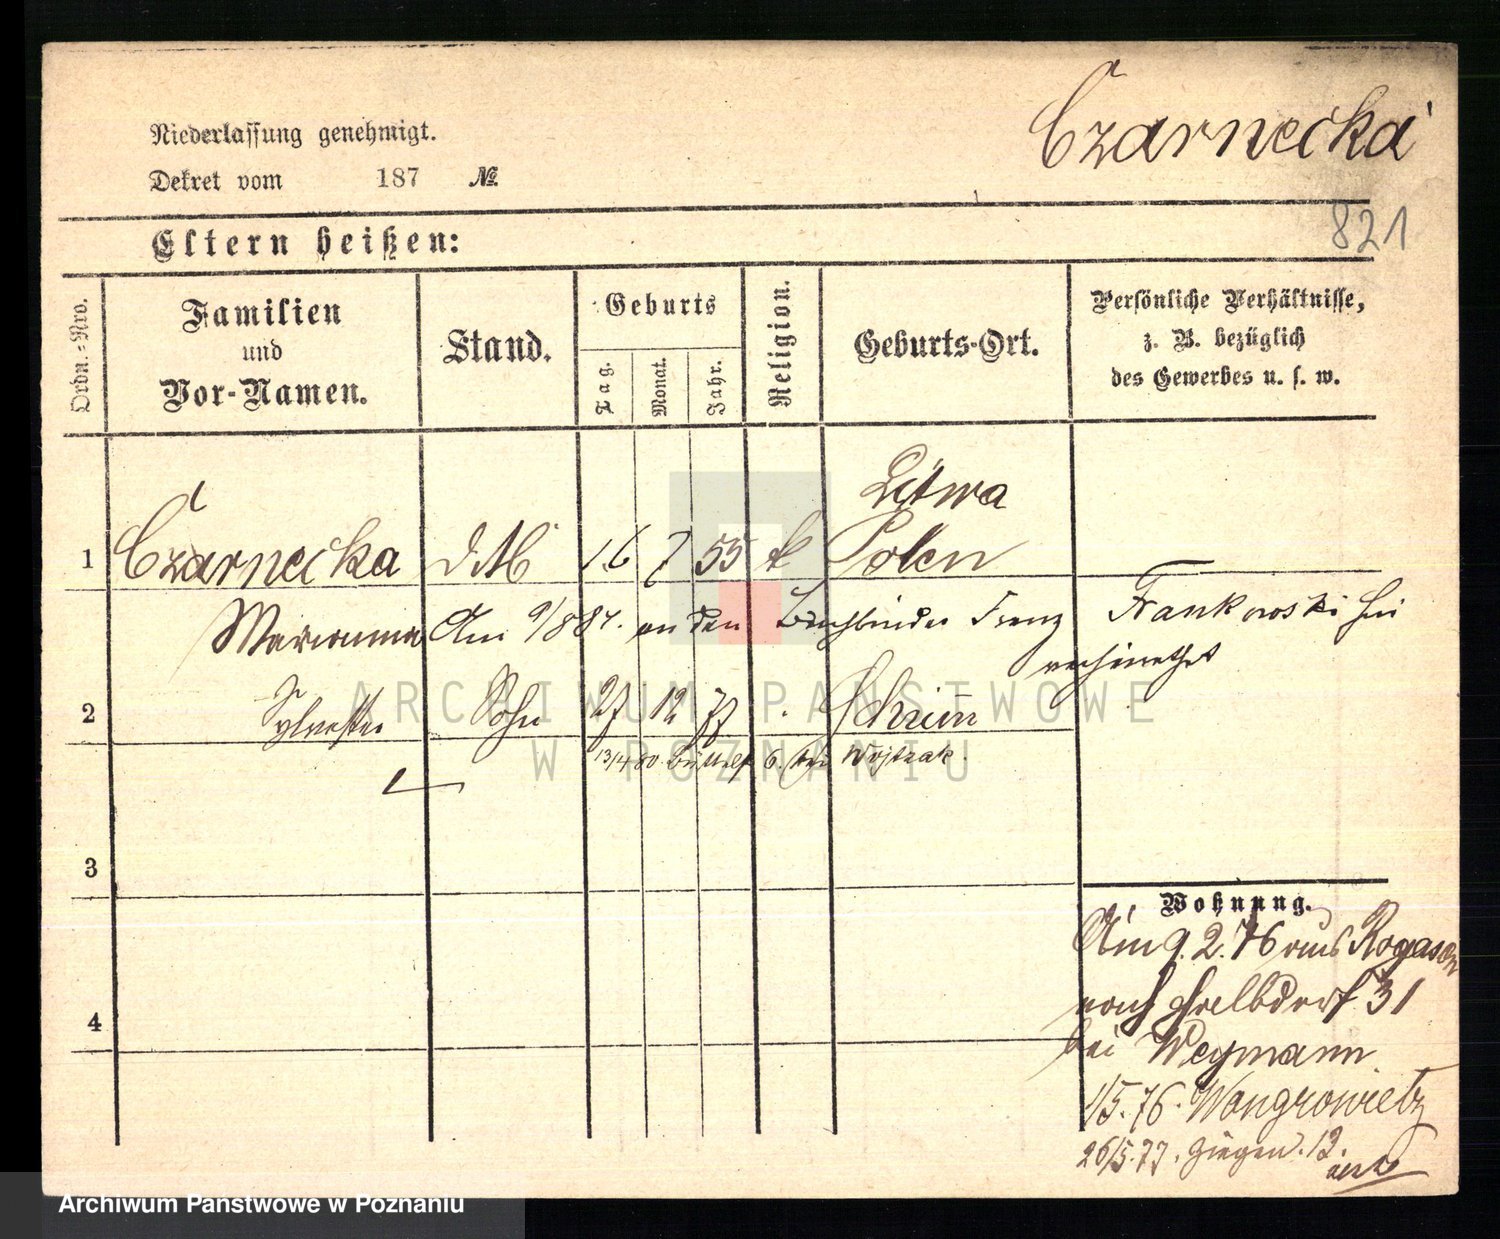 Niederlassung genehmigt.
Czarnecka
Dekret vom 187 №.
821
Eltern heißen:
Ordn.-Nro.
Familien
und
Vor-Namen.
Stand.
Geburts
Tag.
Monat.
Jahr.
Religion.
Geburts-Ort.
Persönliche Verhältnisse,
z. B. bezüglich
des Gewerbes u. s. w.
Litwa
1 Czarnecka 16 7 55 k Polen
Marianna Am 9/8 87. an den Buchbinder Franz Frankowski hier
verheirathet
2 Sylvester Sohn 27 12 77 Schrimm
13/4 80 Büttelst 6. bei Wojtzak.
3
Wohnung.
Am 9. 2. 76 aus Rogasen
nach Halbdorf 31
4
bei Weymann
1/5. 76. Wongrowietz
26/5. 77. 12.
ARCHIWUM PAŃSTWOWE
W POZNANIU
Archiwum Państwowe w Poznaniu